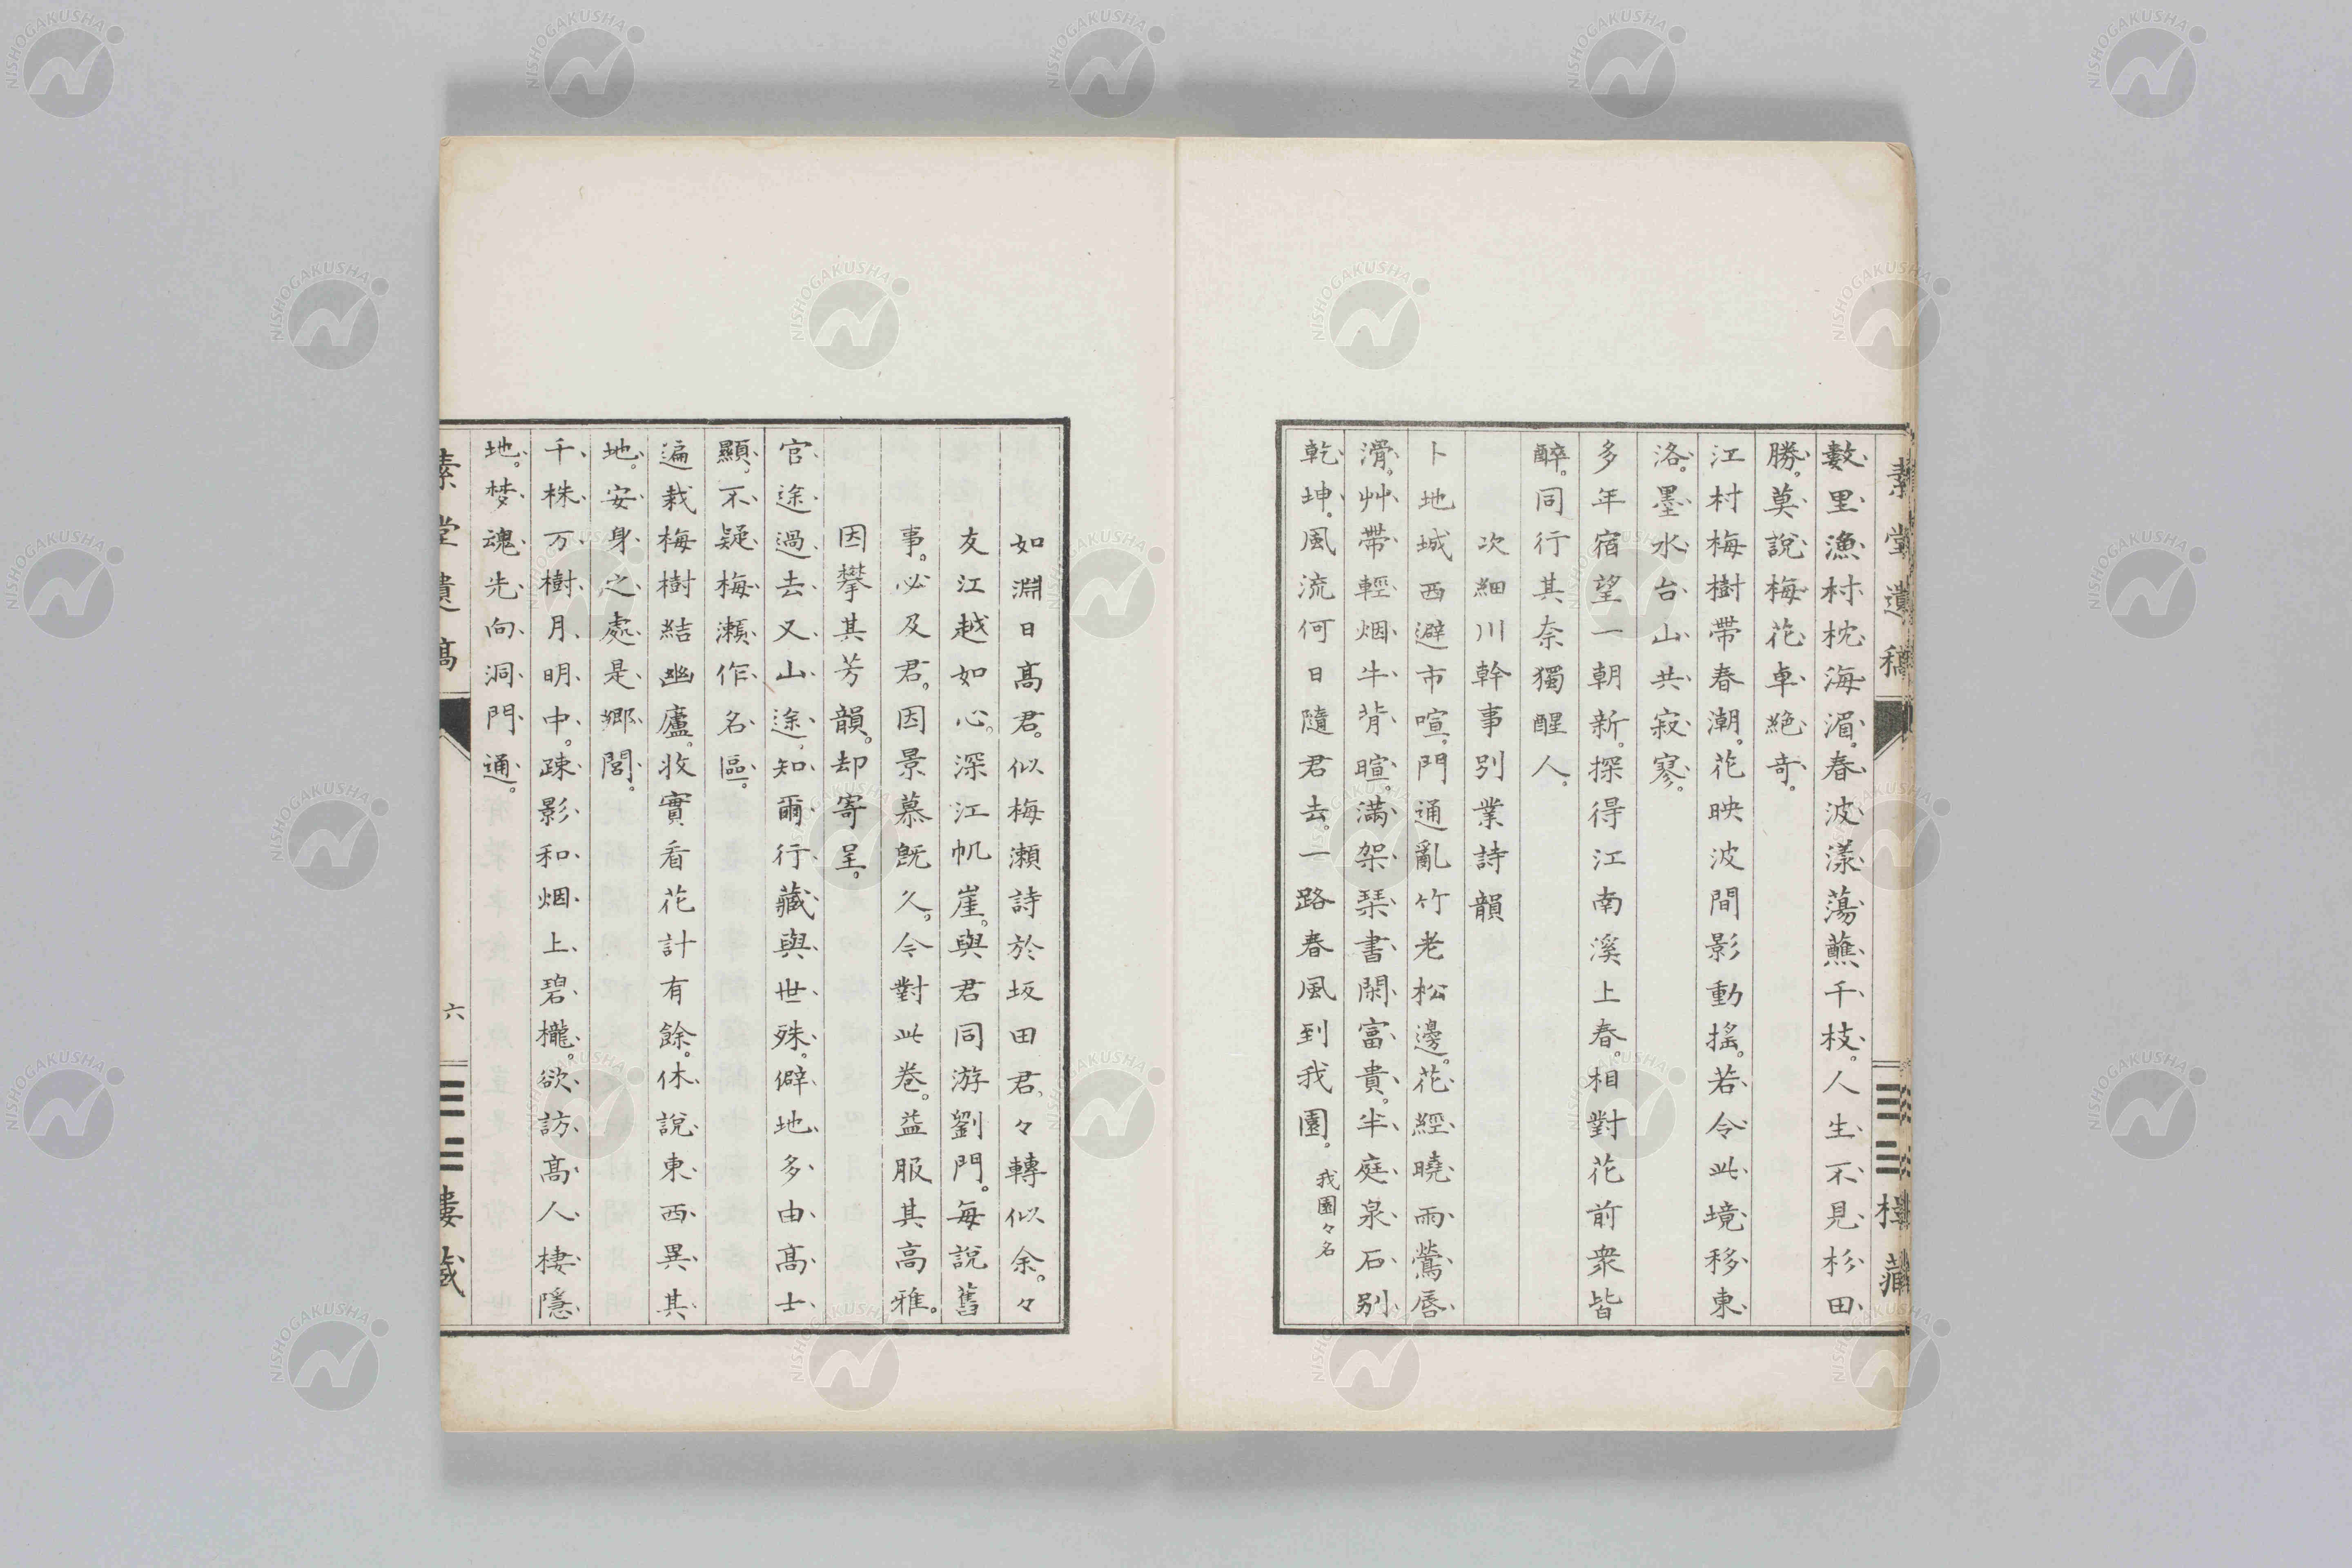 素堂遺稿
三三樓藏
數里漁村枕海湄。春波漾蕩蘸千枝。人生不見杉田
勝。莫說梅花卓絕奇。
江村梅樹帶春潮。花映波間影動搖。若令此境移東
洛。墨水台山共寂寥。
多年宿望一朝新。探得江南溪上春。相對花前衆皆
醉。同行其奈獨醒人。
次細川幹事別業詩韻
卜地城西避市喧。門通亂竹老松邊。花經曉雨鶯唇
滑。艸帶輕烟牛背暄。滿架琹書閑富貴。半庭泉石別
乾坤。風流何日隨君去。一路春風到我園。我園々名
如淵日髙君。似梅瀬詩於坂田君、々轉似余。々
友江越如心。深江帆崖。與君同游劉門。每說舊
事。必及君。因景慕既久。今對此卷。益服其高雅。
因攀其芳韻。却寄呈。
官途過去又山途、知爾行藏與世殊。僻地多由髙士
顯、不疑梅瀬作名區。
遍栽梅樹結幽廬。收實看花計有餘。休說東西異其
地。安身之處是鄉閭。
千株万樹月明中。疎影和烟上碧櫳。欲訪髙人棲隱
地。梦魂先向洞門通。
素堂遺稿
六
三三樓藏